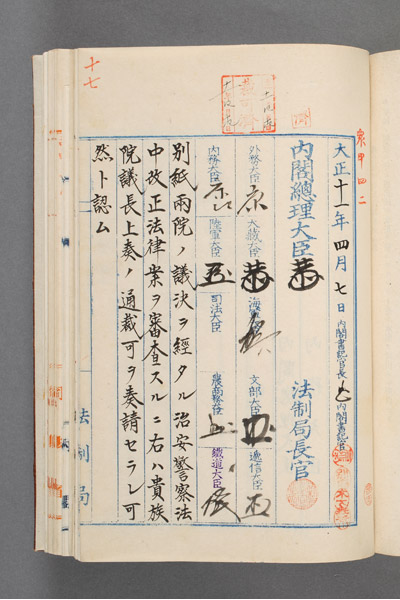 十七
大正十一年四月七日 内閣書記官長 内閣書記官
内閣總理大臣 法制局長官
外務大臣 大藏大臣 海軍大臣 文部大臣 遞信大臣
内務大臣 陸軍大臣 司法大臣 農商務大臣 鐵道大臣
別紙兩院ノ議決ヲ經タル治安警察法
中改正法律案ヲ審査スルニ右ハ貴族
院議長上奏ノ通裁可ヲ奏請セラレ可
然ト認ム
法制局